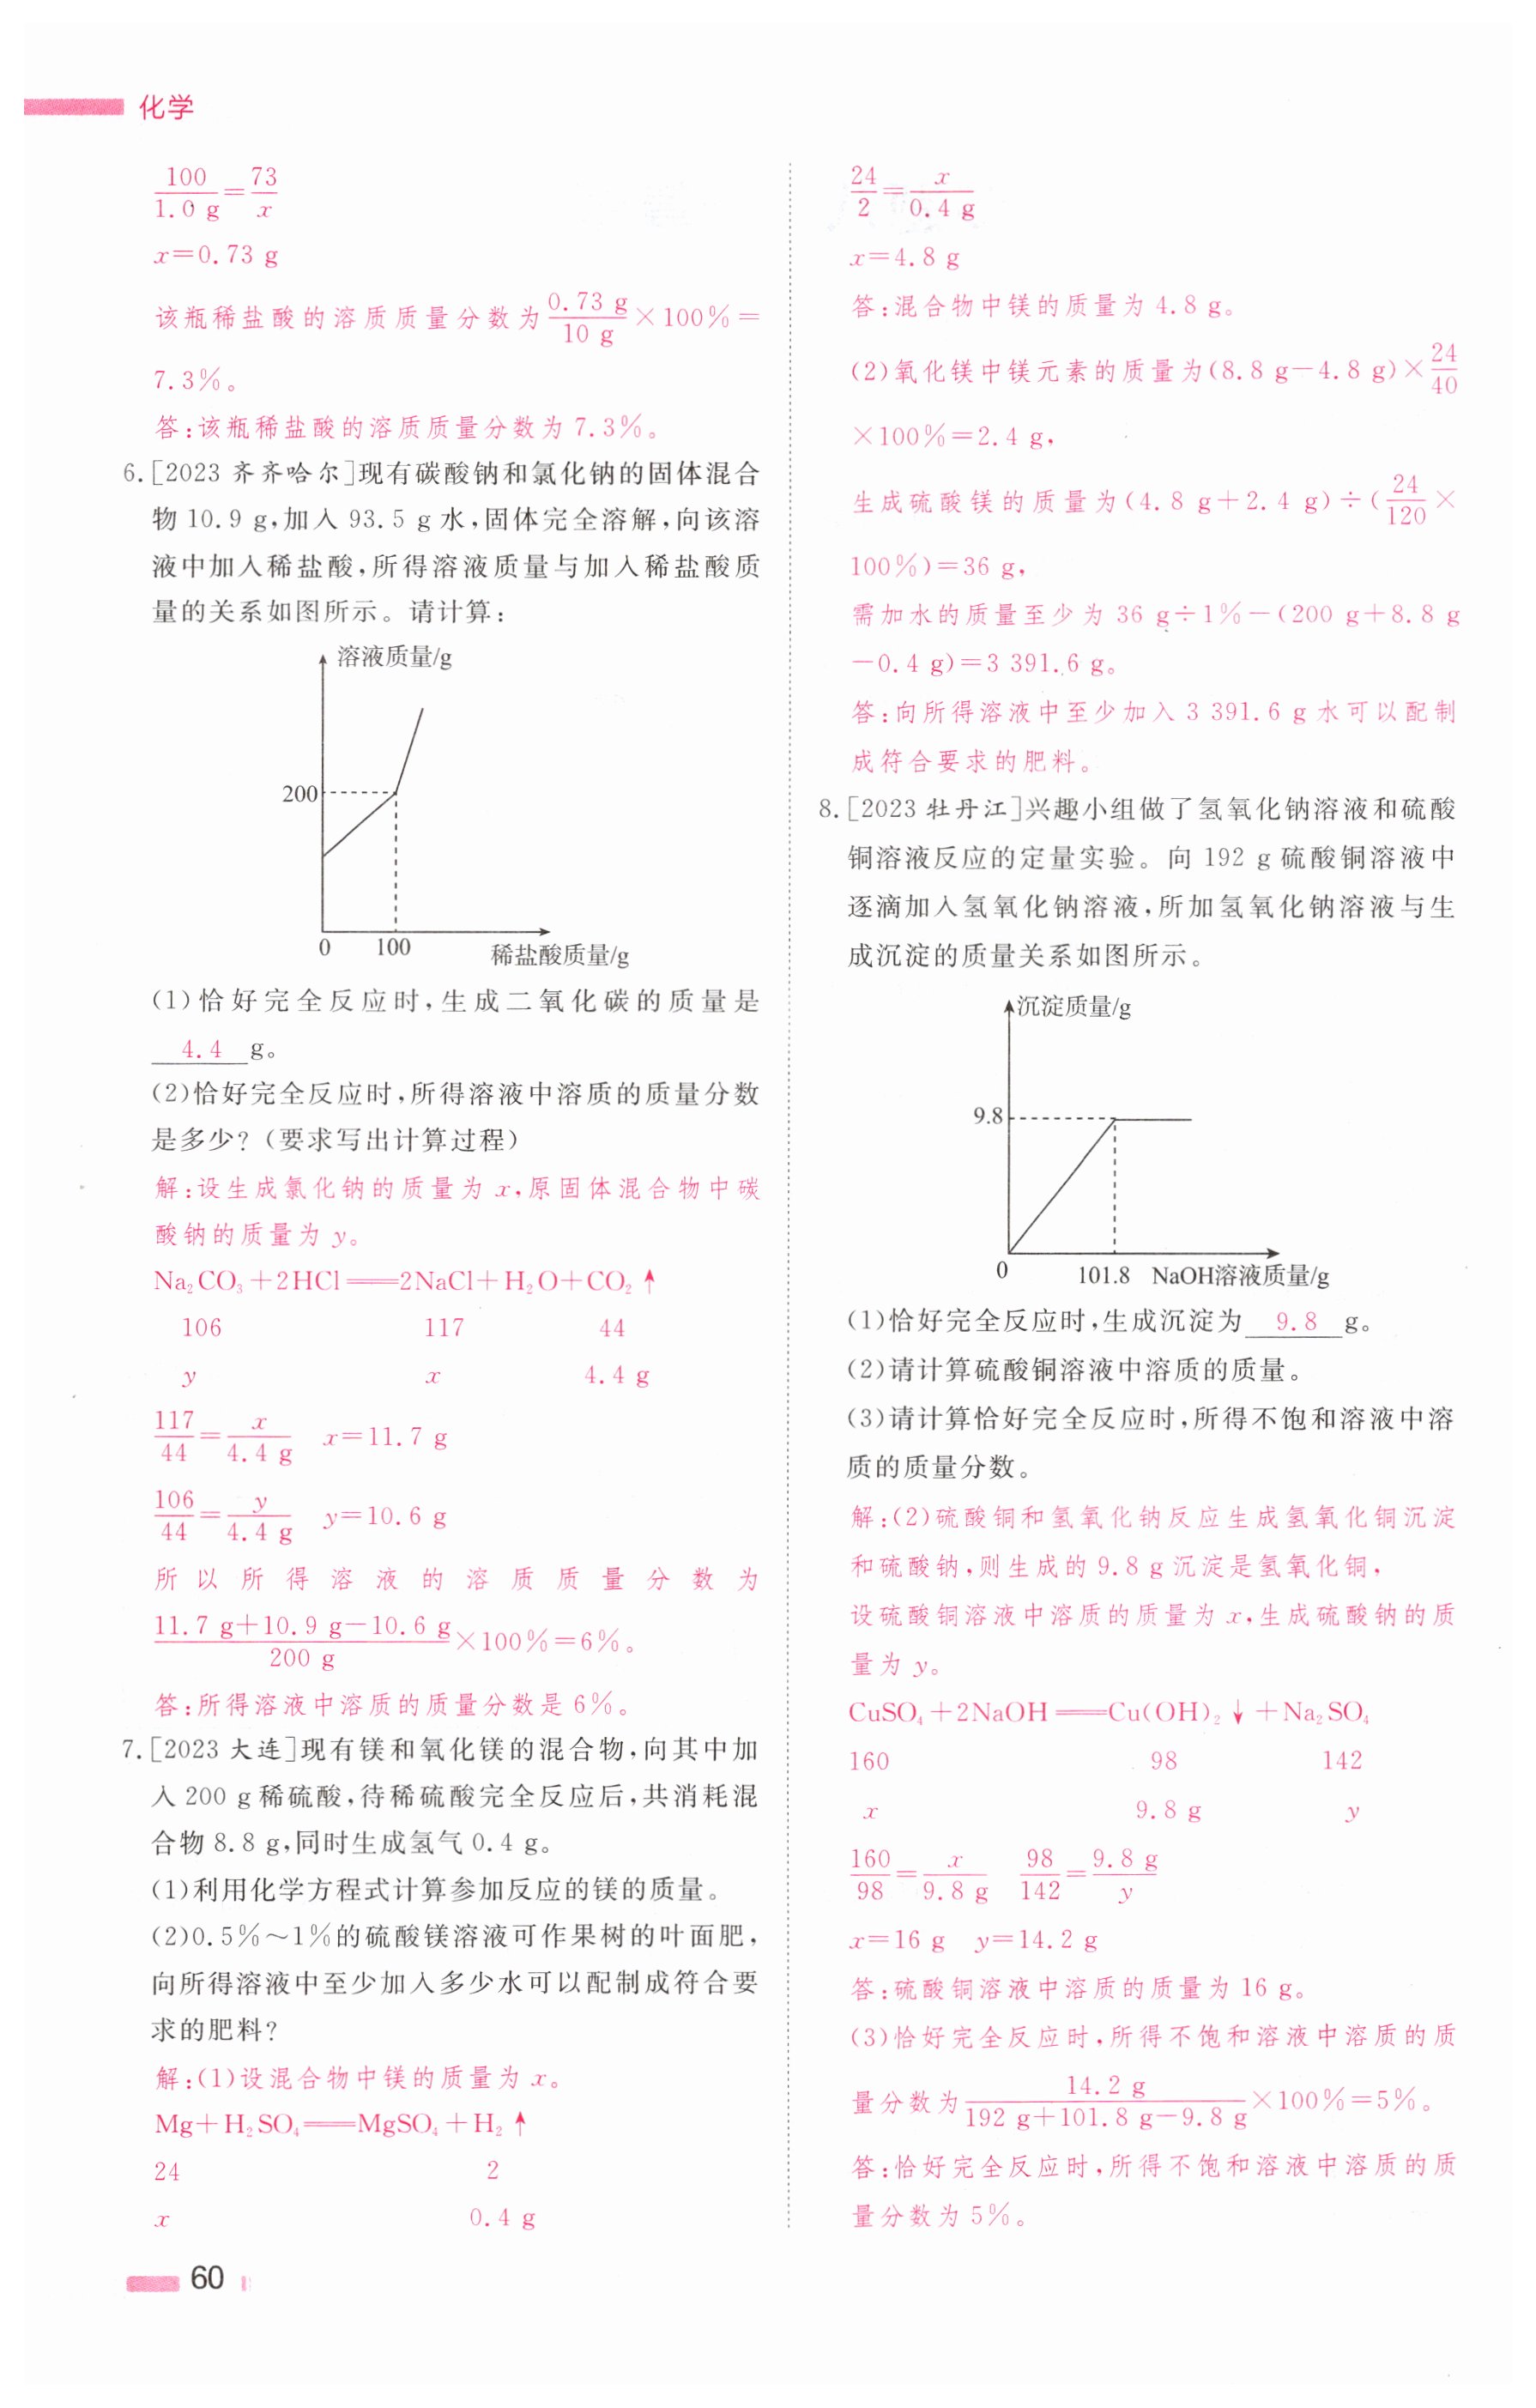 化学
100/1.0 g=73/x
x=0.73 g
该瓶稀盐酸的溶质质量分数为0.73 g/10 g×100%=
7.3%。
答:该瓶稀盐酸的溶质质量分数为7.3%。
6.[2023 齐齐哈尔]现有碳酸钠和氯化钠的固体混合
物10.9 g,加入 93.5 g 水,固体完全溶解,向该溶
液中加入稀盐酸,所得溶液质量与加入稀盐酸质
量的关系如图所示。请计算:
溶液质量/g
200
0 100 稀盐酸质量/g
(1)恰好完全反应时,生成二氧化碳的质量是
4.4 g。
(2)恰好完全反应时,所得溶液中溶质的质量分数
是多少?(要求写出计算过程)
解:设生成氯化钠的质量为 x,原固体混合物中碳
酸钠的质量为 y。
Na₂CO₃+2HCl══2NaCl+H₂O+CO₂↑
106 117 44
y x 4.4 g
117/44=x/4.4 g x=11.7 g
106/44=y/4.4 g y=10.6 g
所以所得溶液的溶质质量分数为
11.7 g+10.9 g-10.6 g/200 g×100%=6%。
答:所得溶液中溶质的质量分数是6%。
7.[2023 大连]现有镁和氧化镁的混合物,向其中加
入200 g稀硫酸,待稀硫酸完全反应后,共消耗混
合物8.8 g,同时生成氢气0.4 g。
(1)利用化学方程式计算参加反应的镁的质量。
(2)0.5%~1%的硫酸镁溶液可作果树的叶面肥,
向所得溶液中至少加入多少水可以配制成符合要
求的肥料?
解:(1)设混合物中镁的质量为 x。
Mg+H₂SO₄══MgSO₄+H₂↑
24 2
x 0.4 g
60
24/2=x/0.4 g
x=4.8 g
答:混合物中镁的质量为4.8 g。
(2)氧化镁中镁元素的质量为(8.8 g-4.8 g)×24/40
×100%=2.4 g,
生成硫酸镁的质量为(4.8 g+2.4 g)÷(24/120×
100%)=36 g,
需加水的质量至少为 36 g÷1%-(200 g+8.8 g
-0.4 g)=3 391.6 g。
答:向所得溶液中至少加入3 391.6 g水可以配制
成符合要求的肥料。
8.[2023 牡丹江]兴趣小组做了氢氧化钠溶液和硫酸
铜溶液反应的定量实验。向 192 g 硫酸铜溶液中
逐滴加入氢氧化钠溶液,所加氢氧化钠溶液与生
成沉淀的质量关系如图所示。
沉淀质量/g
9.8
0 101.8 NaOH溶液质量/g
(1)恰好完全反应时,生成沉淀为 9.8 g。
(2)请计算硫酸铜溶液中溶质的质量。
(3)请计算恰好完全反应时,所得不饱和溶液中溶
质的质量分数。
解:(2)硫酸铜和氢氧化钠反应生成氢氧化铜沉淀
和硫酸钠,则生成的9.8 g沉淀是氢氧化铜,
设硫酸铜溶液中溶质的质量为 x,生成硫酸钠的质
量为 y。
CuSO₄+2NaOH══Cu(OH)₂↓+Na₂SO₄
160 98 142
x 9.8 g y
160/98=x/9.8 g 98/142=9.8 g/y
x=16 g y=14.2 g
答:硫酸铜溶液中溶质的质量为16 g。
(3)恰好完全反应时,所得不饱和溶液中溶质的质
量分数为14.2 g/192 g+101.8 g-9.8 g×100%=5%。
答:恰好完全反应时,所得不饱和溶液中溶质的质
量分数为5%。